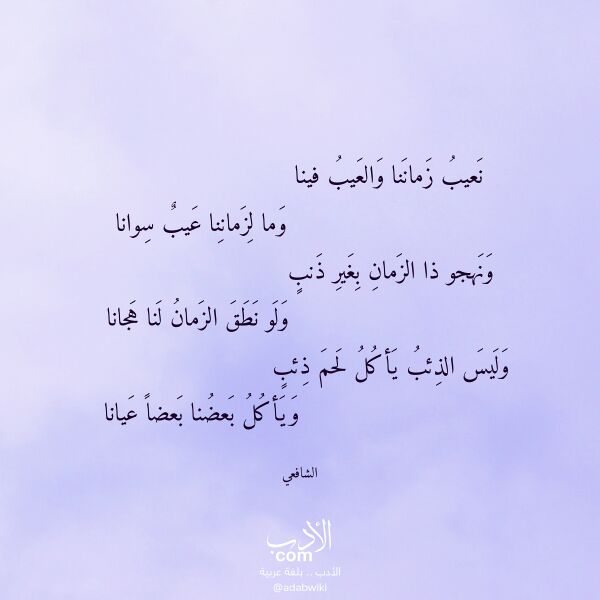 نَعيبُ زَمانَنا وَالعَيبُ فينا
وَما لِزَمانِنا عَيبٌ سِوانا
وَنَهجو ذا الزَمانِ بِغَيرِ ذَنبٍ
وَلَو نَطَقَ الزَمانُ لَنا هَجانا
وَلَيسَ الذِئبُ يَأكُلُ لَحمَ ذِئبٍ
وَيَأكُلُ بَعضُنا بَعضاً عَيانا
الشافعي
الأدب
com
الأدب .. بلغة عربية
@adabwiki